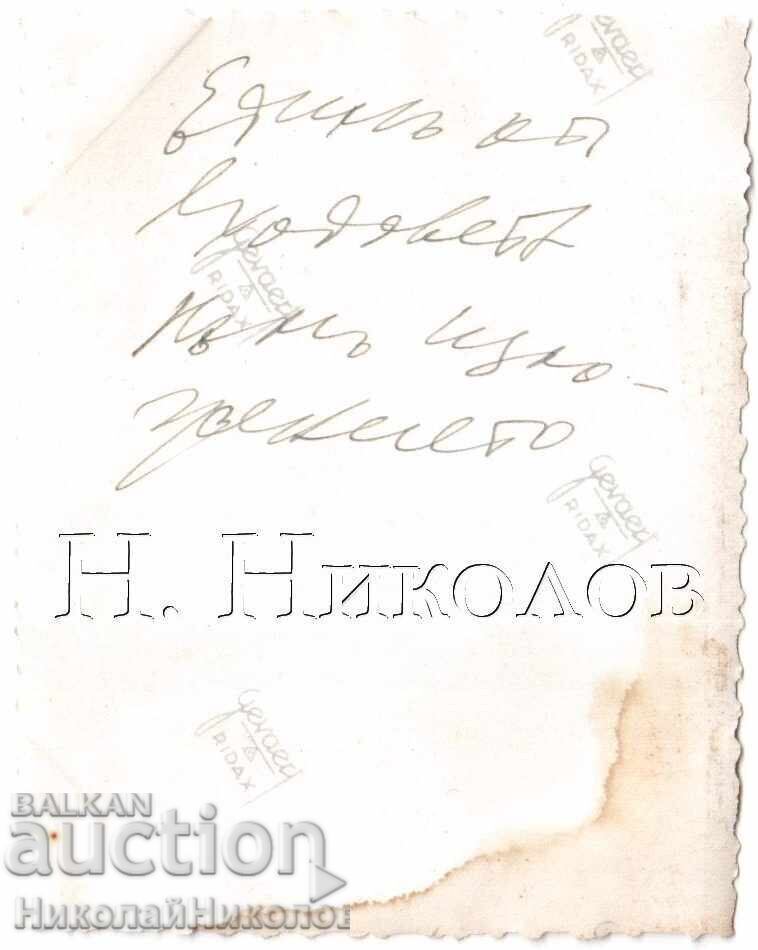 Gevaert
RIDAX
Единъ от
входовете
Gevaert
RIDAX
къмъ изло-
жението
Gevaert
RIDAX
Н. Николов
Gevaert
RIDAX
BALKAN
auction
НиколайНиколов